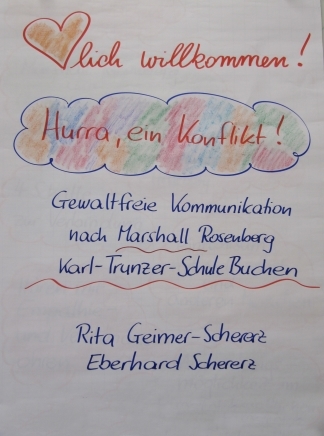 lich willkommen!
Hurra, ein Konflikt!
Gewaltfreie Kommunikation
nach Marshall Rosenberg
Karl-Trunzer-Schule Buchen
Rita Geimer-Schererz
Eberhard Schererz